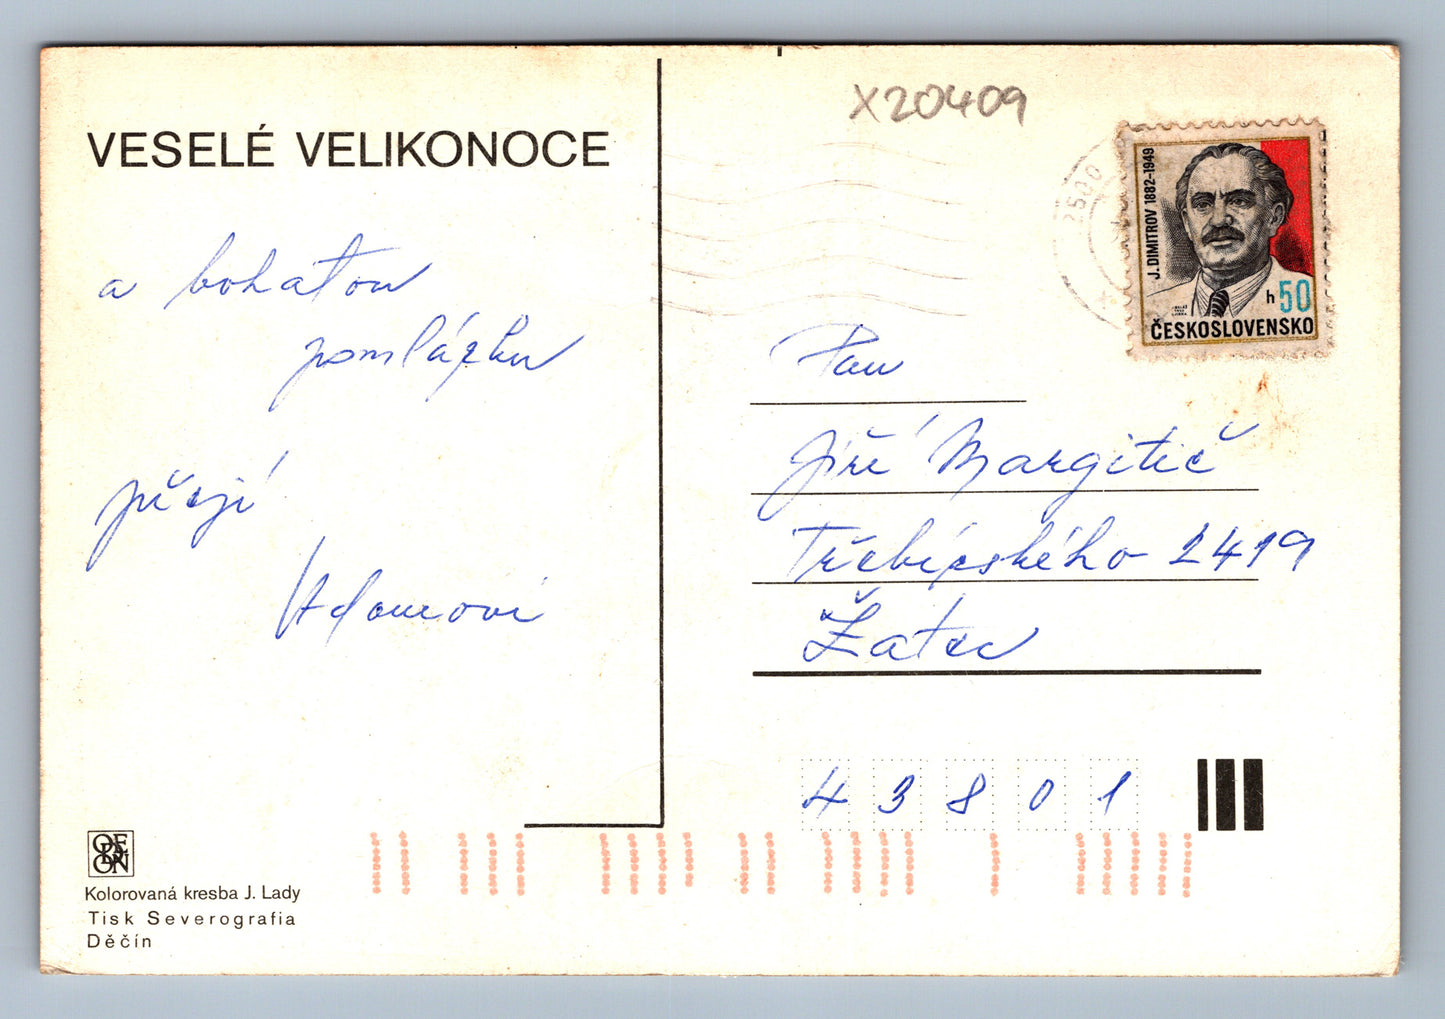 VESELÉ VELIKONOCE
a bohatou
pomlázku
přejí
Adamovi
X20409
2500
J. DIMITROV 1882-1949
h 50
ČESKOSLOVENSKO
Pan
Jiří Margitič
Třebízského 2419
Žatec
43801
ODEON
Kolorovaná kresba J. Lady
Tisk Severografia
Děčín